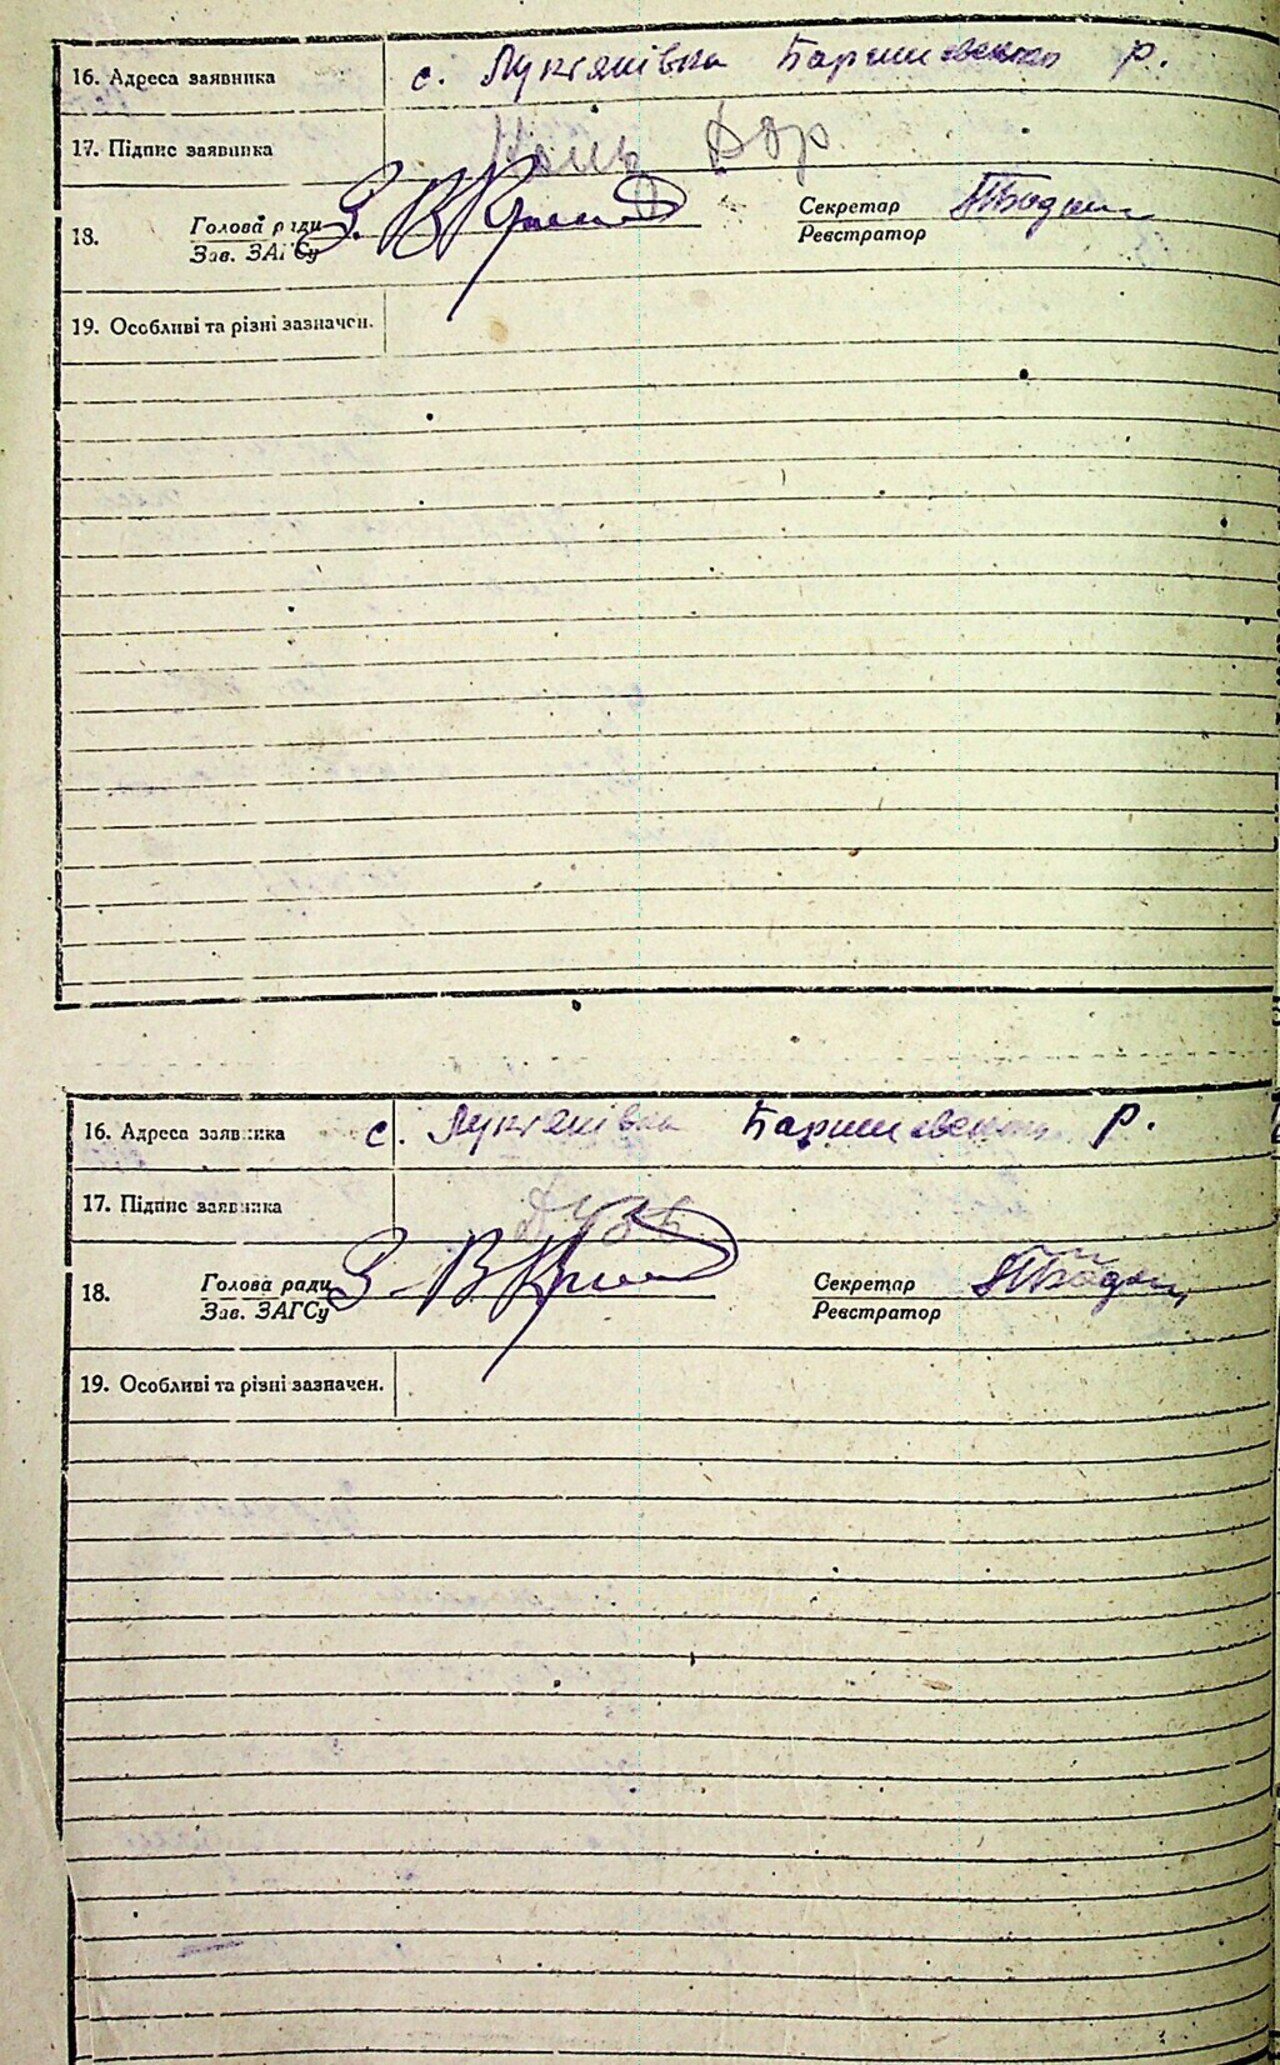 16. Адреса заявника с. Лукянівка Баришевського р.
17. Підпис заявника
18. Голова ради Секретар
Зав. ЗАГСу Реєстратор
19. Особливі та різні зазначен.
16. Адреса заявника с. Лукянівка Баришевського р.
17. Підпис заявника
18. Голова ради Секретар
Зав. ЗАГСу Реєстратор
19. Особливі та різні зазначен.